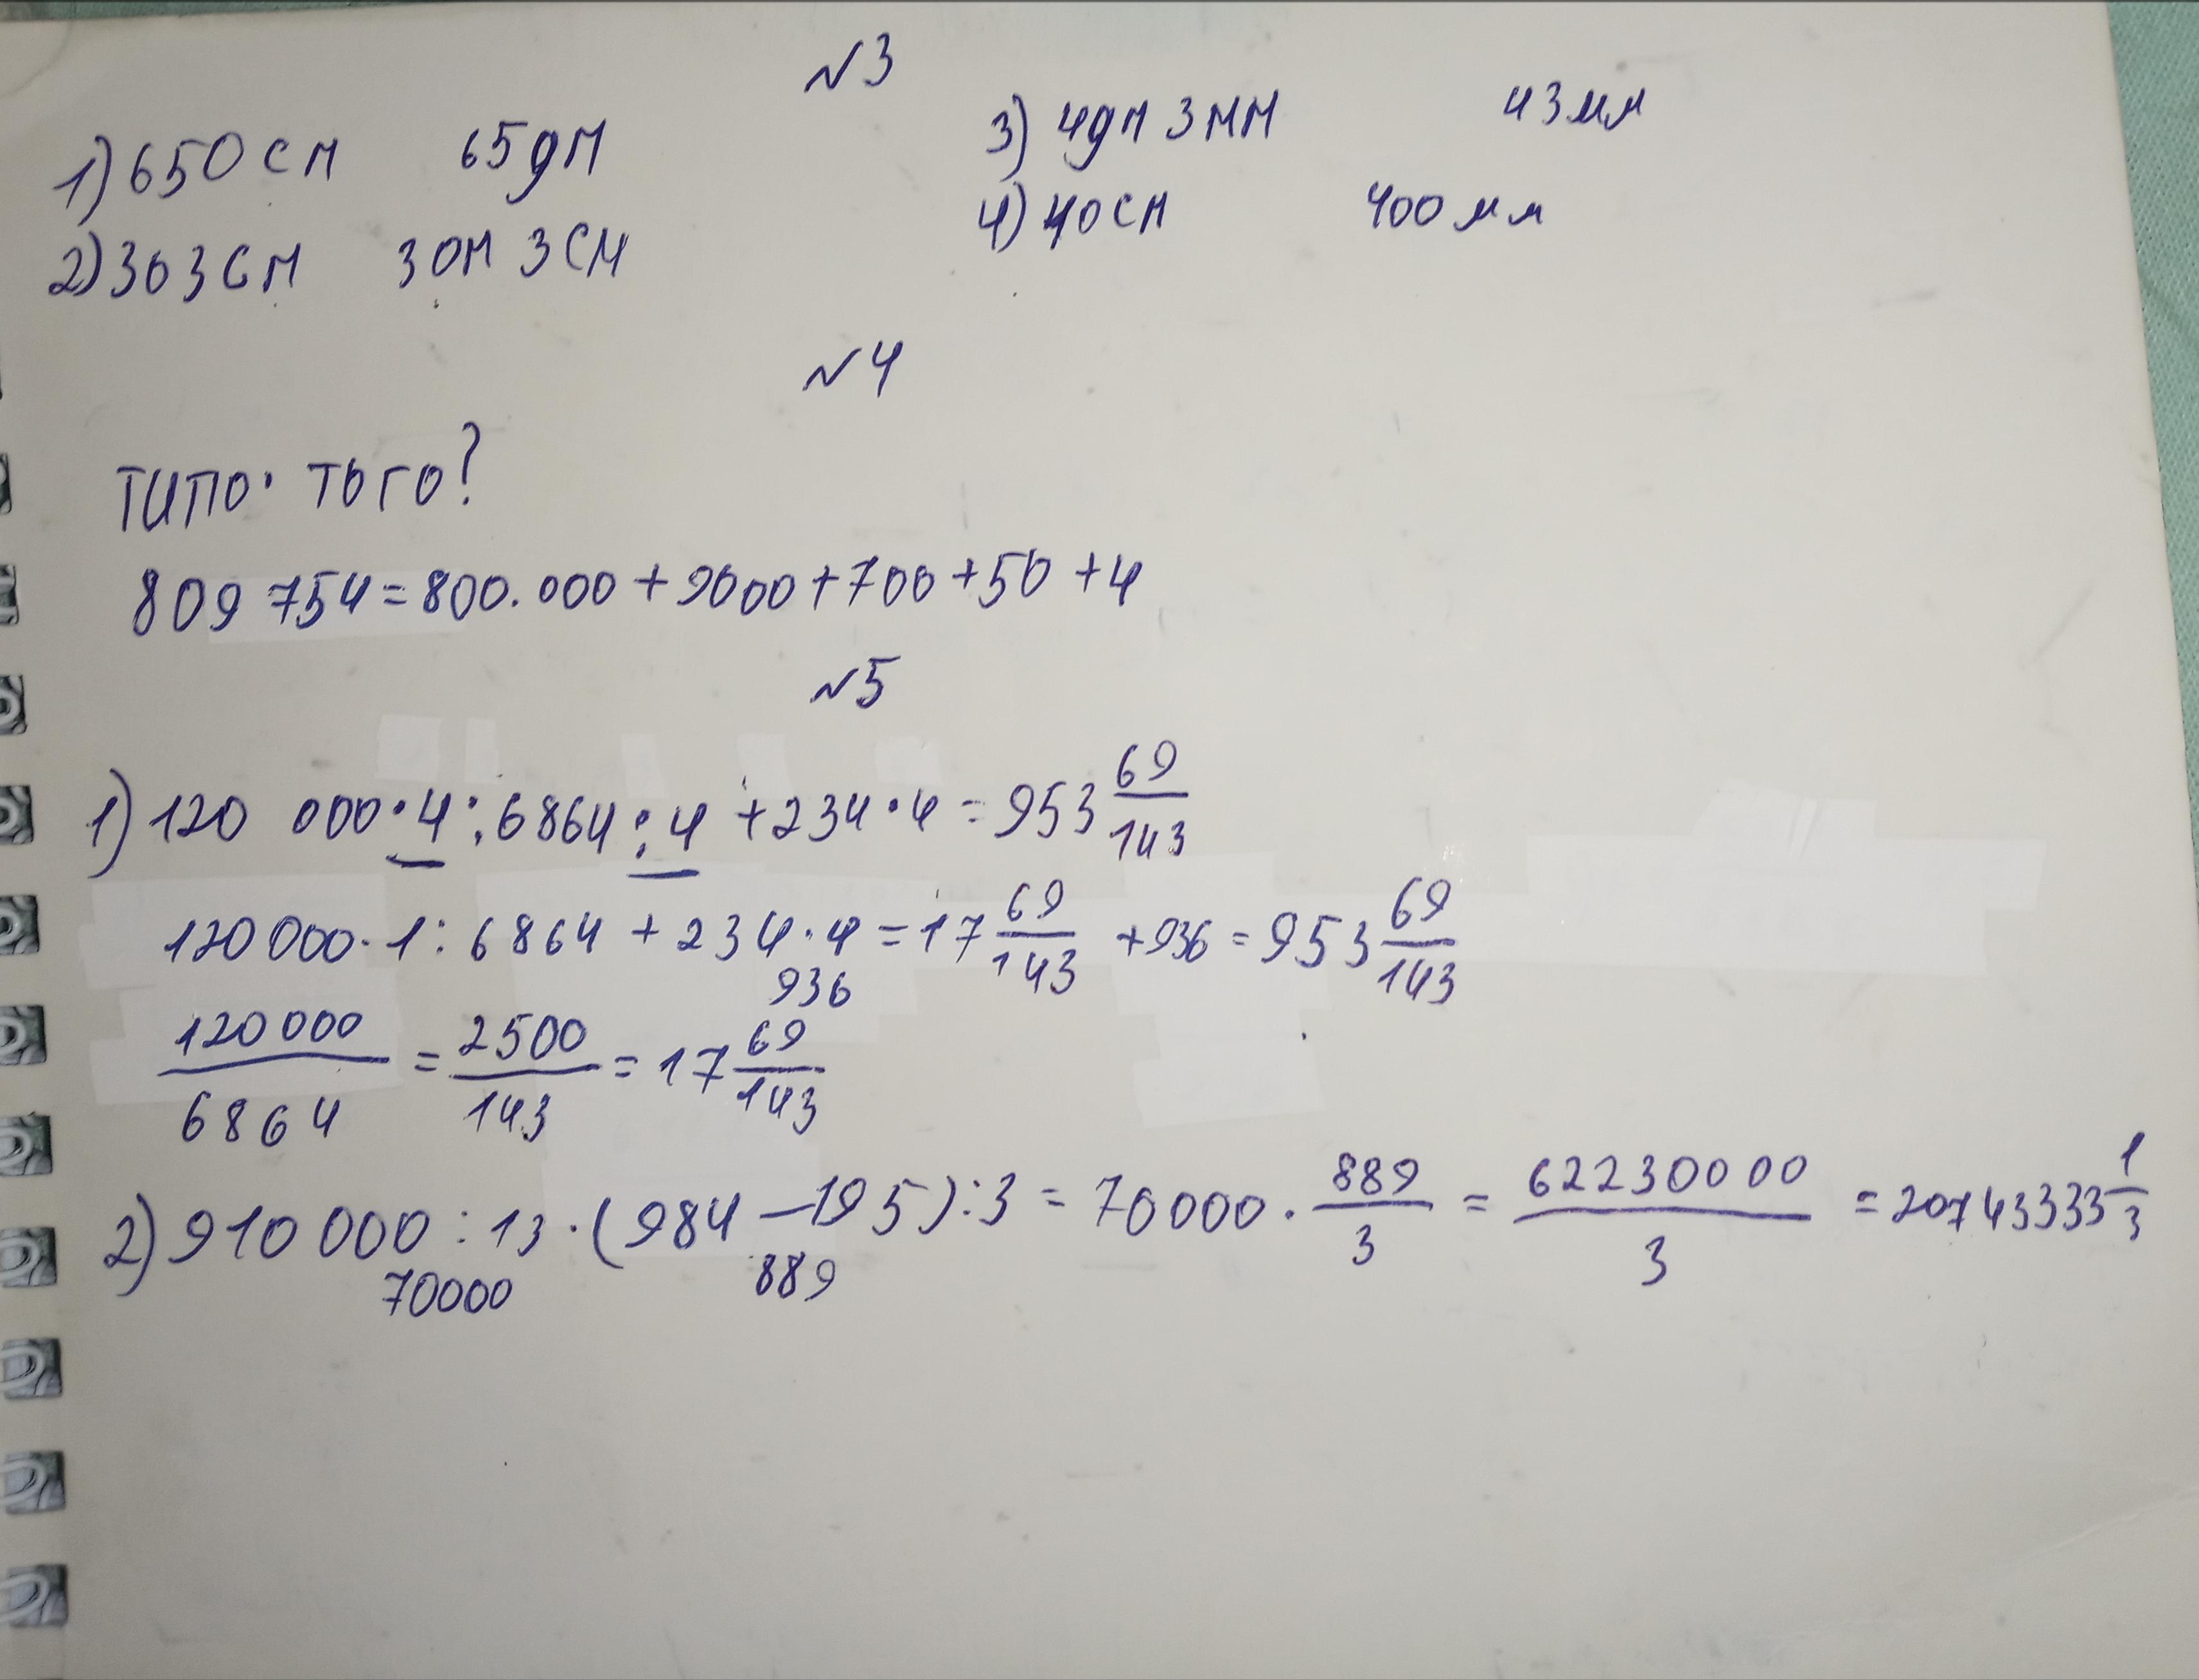 N3
1) 650 см 65 дм
2) 303 см 30м 3см
3) 4дм 3мм 43мм
4) 40см 400мм
N4
типо. того?
809 754 = 800.000 + 9000 + 700 + 50 + 4
N5
1) 120 000 · 4 : 6864 : 4 + 234 · 4 = 953 69/143
120 000 · 1 : 6864 + 234 · 4 = 17 69/143 + 936 = 953 69/143
936
120 000/6864 = 2500/143 = 17 69/143
2) 910 000 : 13 · (984 – 195) : 3 = 70000 · 889/3 = 62230000/3 = 20743333 1/3
70000 889